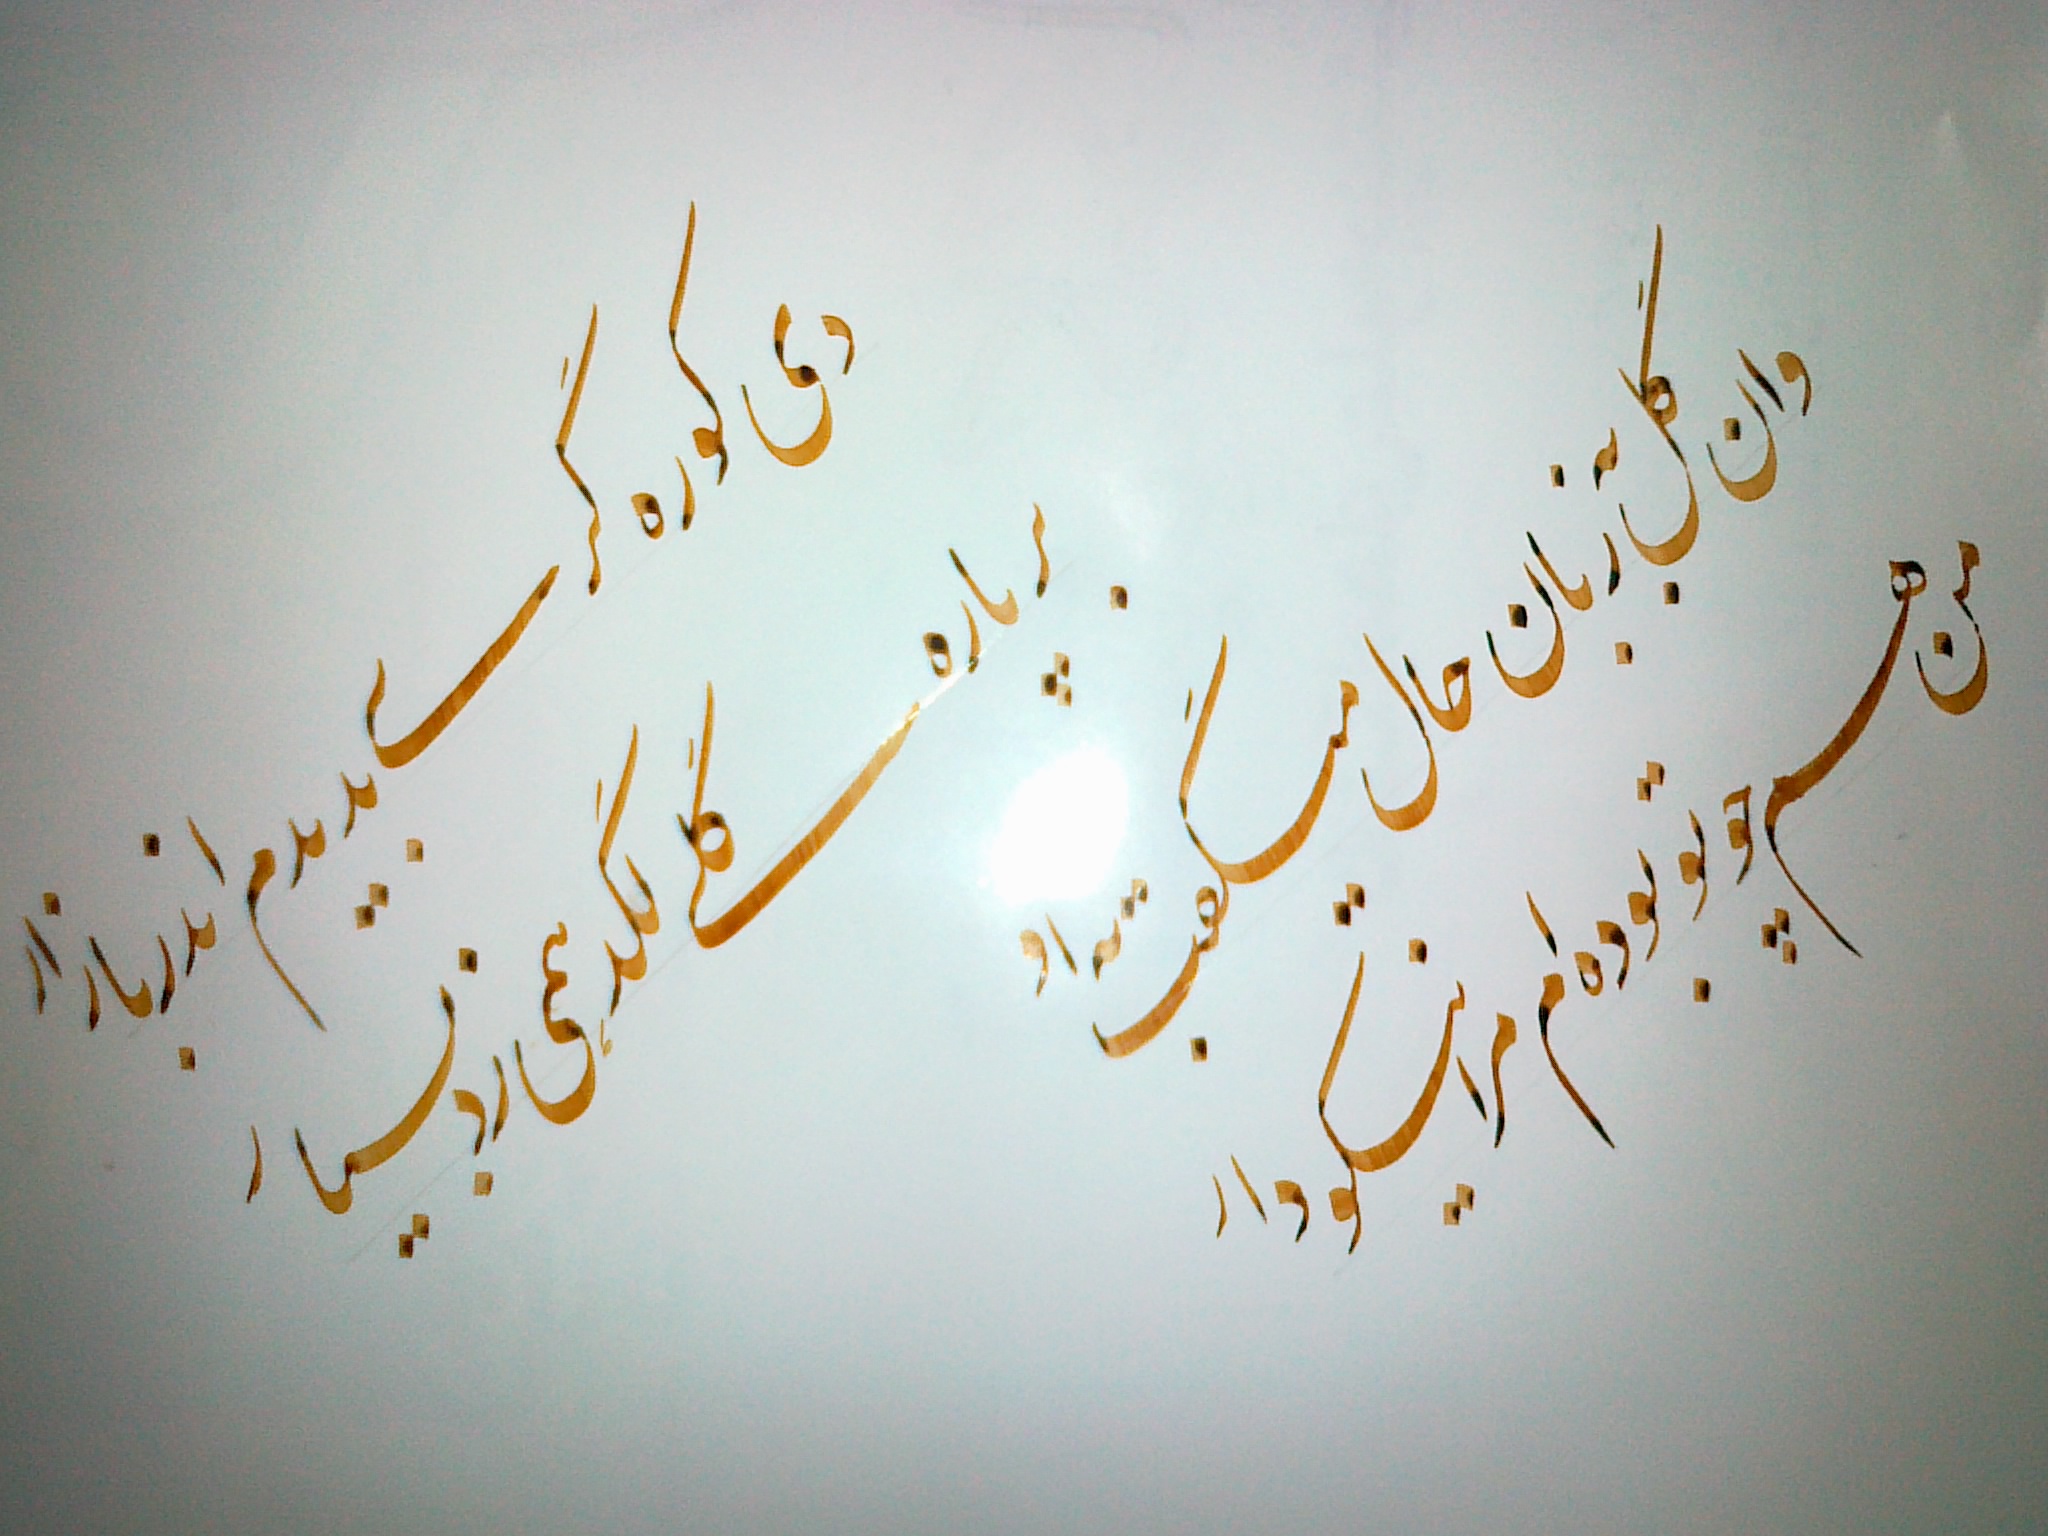 دی کوزه گری بدیدم اندر بازار
بر پاره گلی لگد همی زد بسیار
وان گل به زبان حال میگفت به او
من همچو تو بوده ام مرا نیکودار